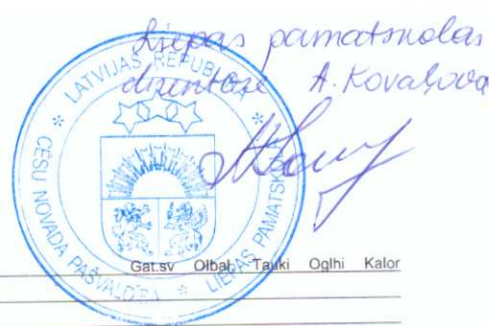 Liepas pamatskolas
direktore A. Kovaļova
LATVIJAS REPUBLIKA
* CĒSU NOVADA PAŠVALDĪBA * LIEPAS PAMATSK
Gat.sv Olbal Tauki Oglhi Kalor